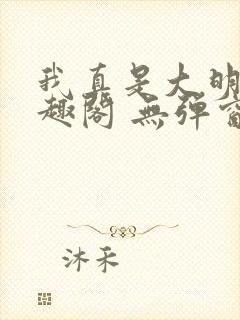 我真是大明
趣阁 無弹窗
沐禾